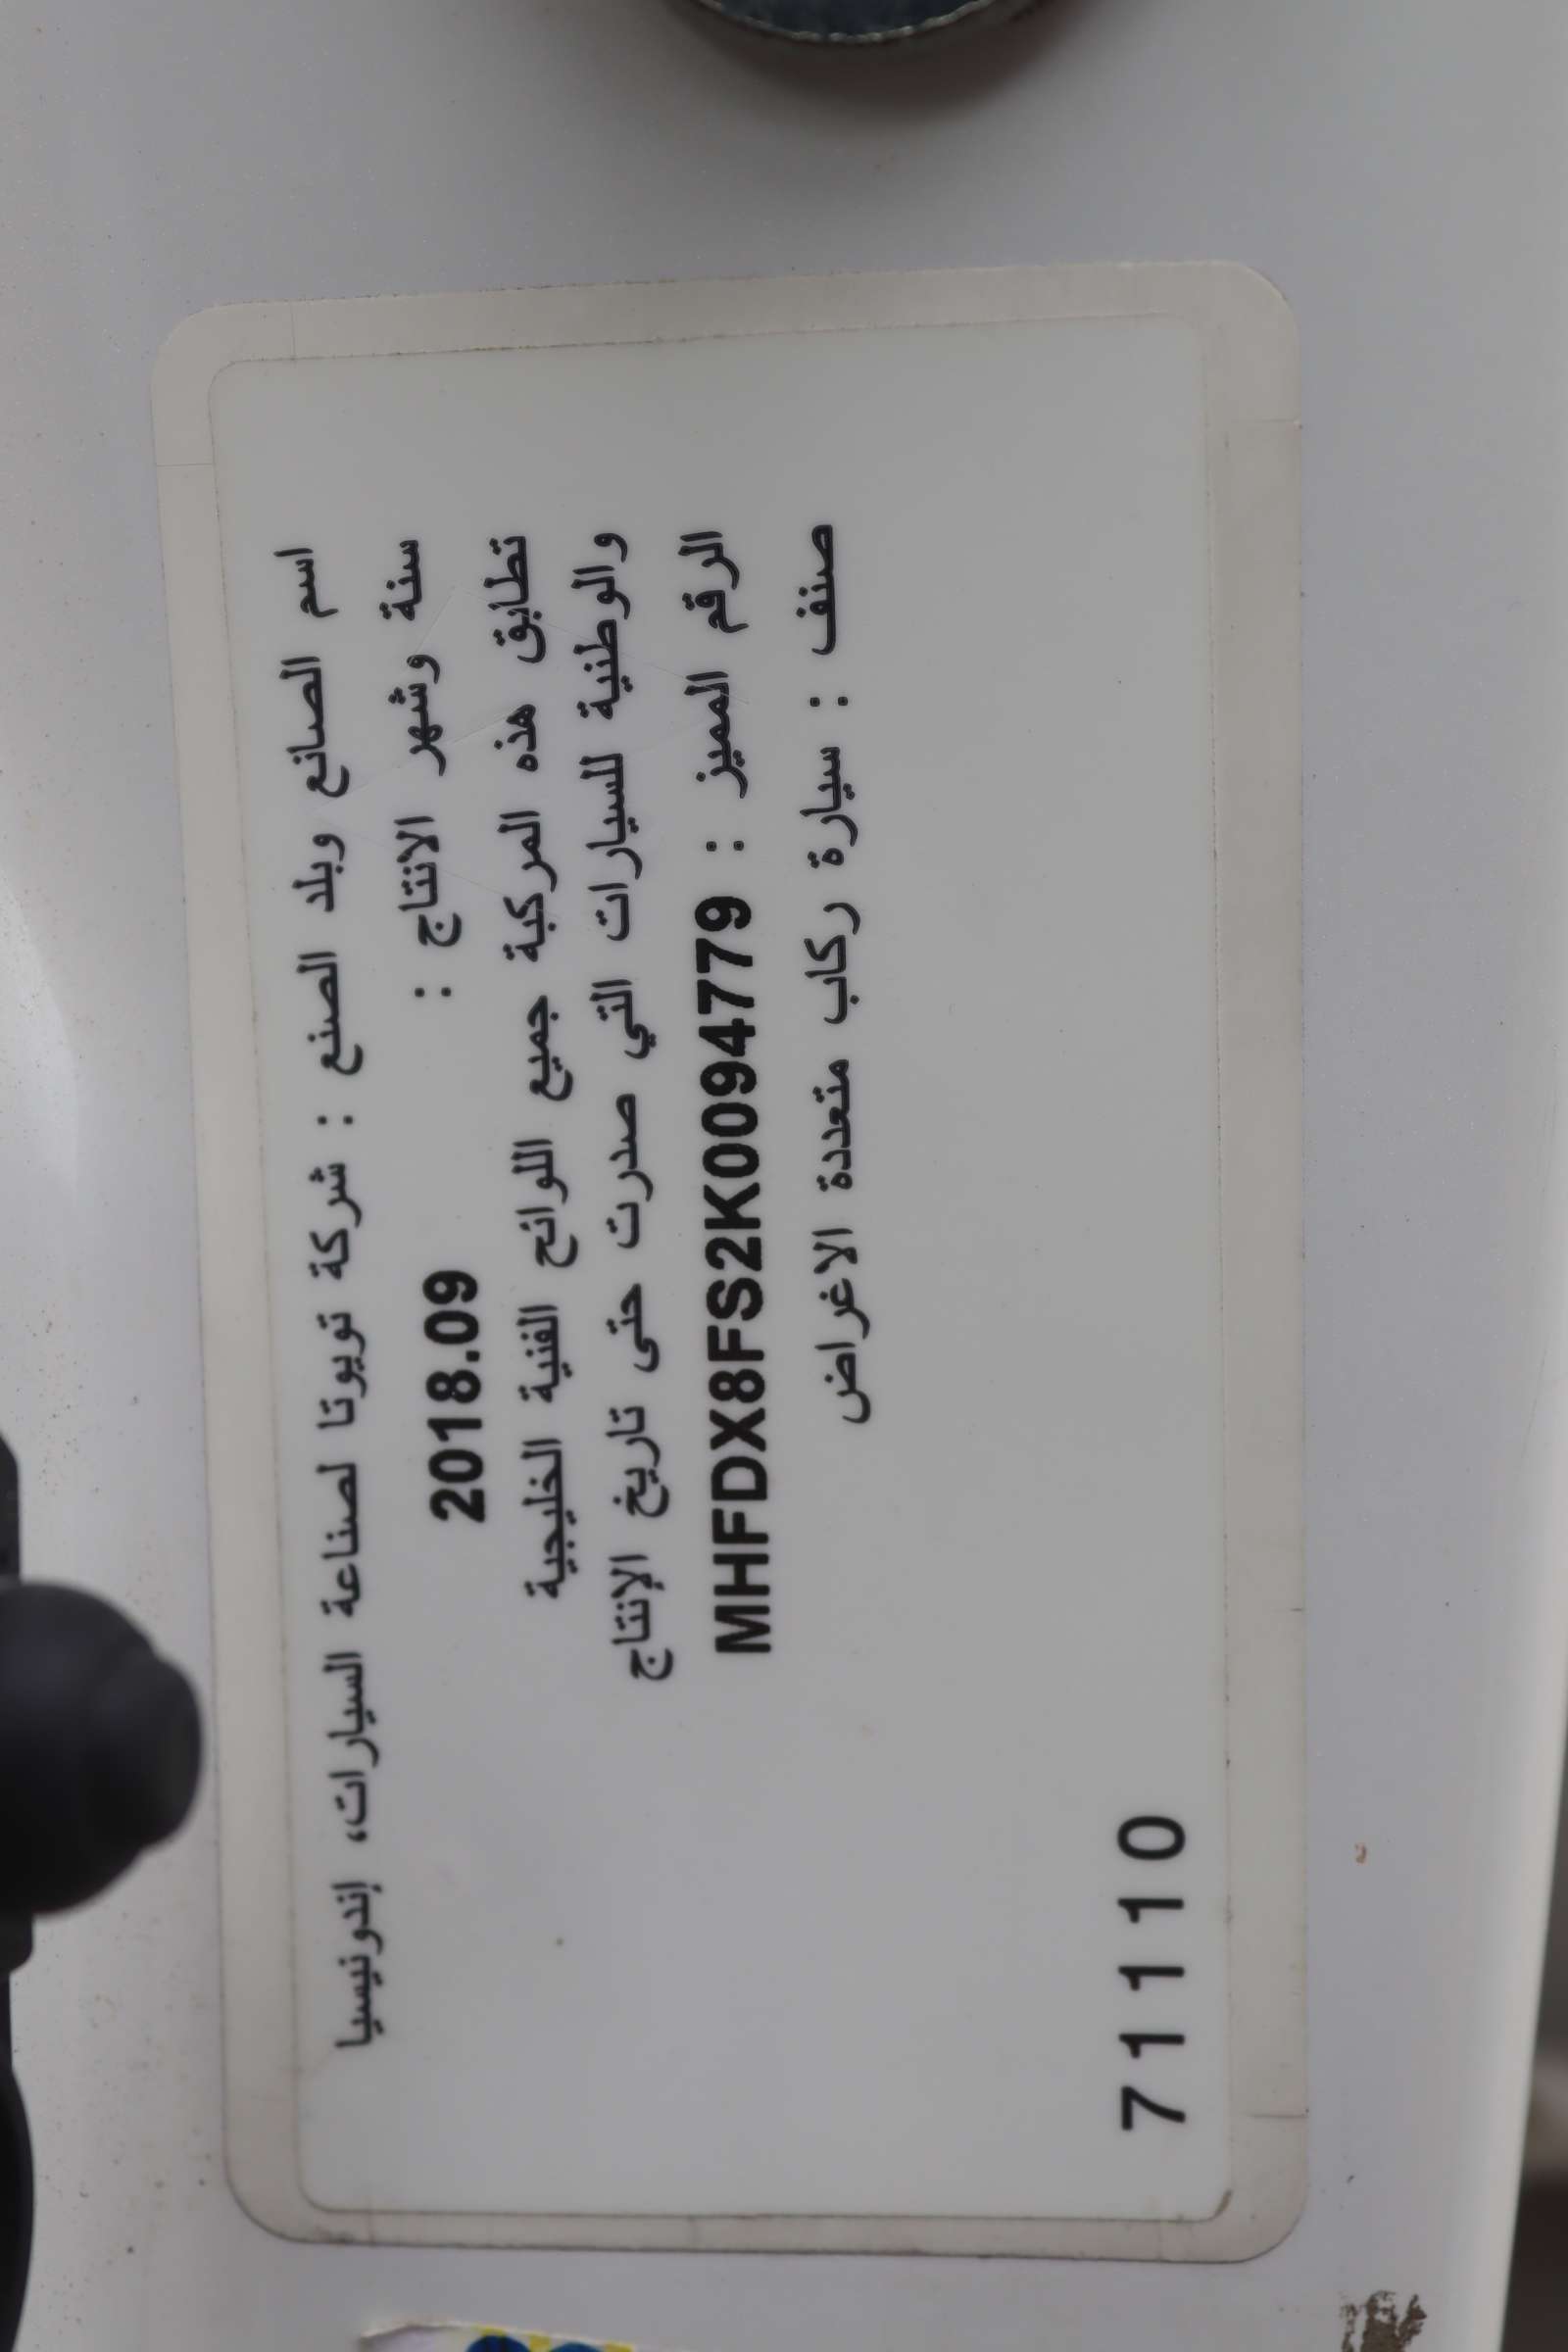 اسم الصانع وبلد الصنع : شركة تويوتا لصناعة السيارات، إندونيسيا
سنة وشهر الانتاج : 2018.09
تطابق هذه المركبة جميع اللوائح الفنية الخليجية
والوطنية للسيارات التي صدرت حتى تاريخ الإنتاج
الرقم المميز : MHFDX8FS2K0094779
صنف : سيارة ركاب متعددة الاغراض
71110